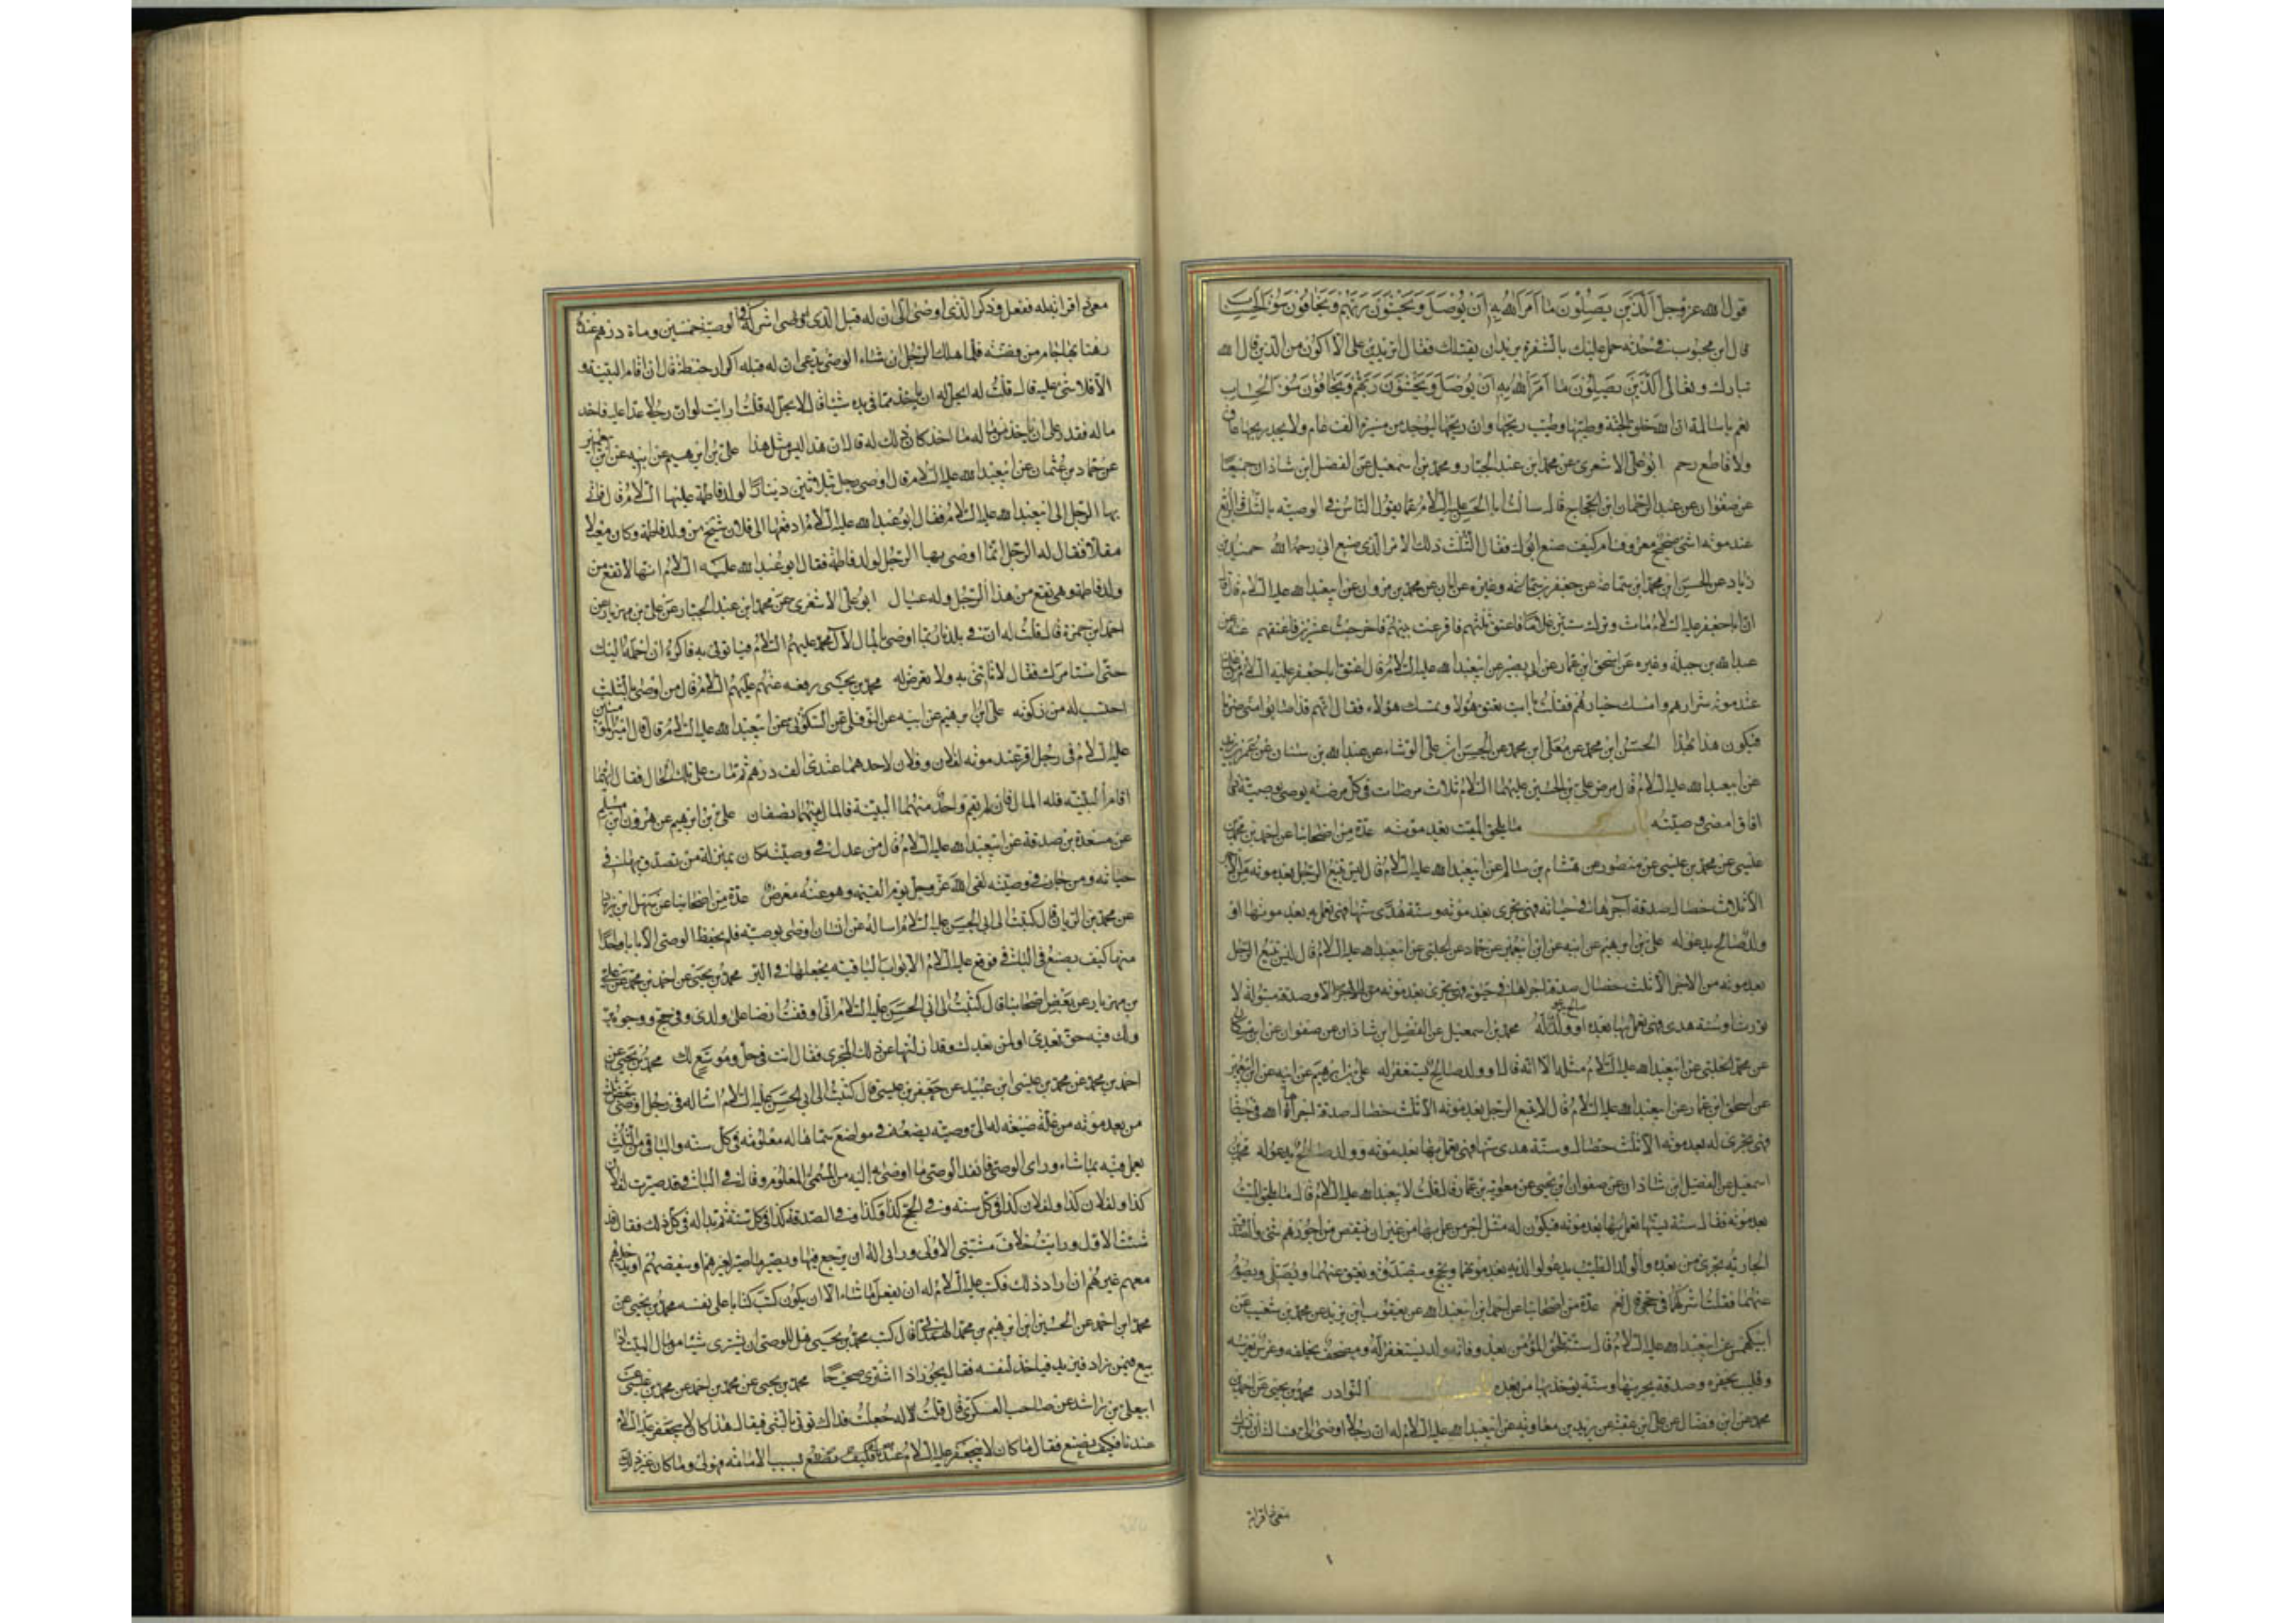 قول الله عز وجل الذين يصلون ما امر الله به ان يوصل ويخشون ربهم ويخافون سوء الحساب
قال ابن محبوب في حديثه حمل عليك بالشفرة يريد ان يقتلك فقال اتريدين على الا اكون من الذين قال الله
تبارك وتعالى الذين يصلون ما امر الله به ان يوصل ويخشون ربهم ويخافون سوء الحساب
نعم يا سالمة ان الله خلق الجنة وطيبها وطيب ريحها وان ريحها ليوجد من مسيرة الف عام ولا يجد ريحها عاق
ولا قاطع رحم ابو على الاشعرى عن محمد ابن عبد الجبار ومحمد بن اسمعيل عن الفضل ابن شاذان جميعا
عن صفوان عن عبد الرحمان ابن الحجاج قال سالت ابا الحسن عليه السلام عما يقول الناس في الوصية بالثلث والربع
عند موته اشئ صحيح معروف ام كيف صنع ابوك فقال الثلث ذلك الامر الذى صنع ابى رحمه الله حميد بن
زياد عن الحسن ابن محمد ابن سماعة عن جعفر بن سماعة وغيره عن ابان عن محمد بن مروان عن ابيعبد الله عليه السلام قال
ان ابا جعفر عليه السلام مات وترك ستين غلاما فاعتق ثلثهم فاقرعت بينهم فاخرجت عشرين فاعتقهم عنه
عبد الله بن جبلة وغيره عن اسحق ابن عمار عن ابى بصير عن ابيعبد الله عليه السلام قال اعتق ابا جعفر عليه السلام من غلمانه
عند موته شرارهم وامسك خيارهم فقلت يا ابت تعتق هؤلاء وتمسك هؤلاء فقال انهم قد اصابوا منى ضربا
فيكون هذا بهذا الحسين ابن محمد عن معلى ابن محمد عن الحسن ابن على الوشاء عن عبد الله بن سنان عن عمر بن يزيد
عن ابيعبد الله عليه السلام قال مرض على بن الحسين عليهما السلام ثلاث مرضات في كل مرضة يوصى بوصية فاذا
افاق امضى وصيته باب ما يلحق الميت بعد موته عدة من اصحابنا عن احمد بن محمد بن
عيسى عن محمد بن عيسى عن منصور عن هشام بن سالم عن ابيعبد الله عليه السلام قال ليس يتبع الرجل بعد موته من الاجر
الا ثلاث خصال صدقة اجراها في حياته فهى تجرى بعد موته وسنة هدى سنها فهى يعمل بها بعد موتها او
ولد صالح يدعو له على بن ابرهيم عن ابيه عن ابن ابيعمير عن حماد عن الحلبى عن ابيعبد الله عليه السلام قال ليس يتبع الرجل
بعد موته من الاجر الا ثلث خصال صدقة اجراها في حيوته فهى تجرى بعد موته من الاجر الا وصدقة مبتولة لا
تورث او سنة هدى فهى يعمل بها بعده او ولد صالح يدعو له محمد بن اسمعيل عن الفضل ابن شاذان عن صفوان عن ابن مسكان
عن محمد الحلبى عن ابيعبد الله عليه السلام مثله الا انه قال او ولد صالح يستغفر له على بن ابرهيم عن ابيه عن ابن ابيعمير
عن اسحق ابن عمار عن ابيعبد الله عليه السلام قال لا يتبع الرجل بعد موته الا ثلث خصال صدقة اجراها الله في حياته
فهى تجرى له بعد موته الا ثلث خصال وسنة هدى سنها فهى يعمل بها بعد موته وولد صالح يدعو له محمد بن
اسمعيل عن الفضل ابن شاذان عن صفوان ابن يحيى عن معوية بن عمار قال قلت لابيعبد الله عليه السلام قال ما يلحق الميت
بعد موته فقال سنة يسنها يعمل بها بعد موته فيكون له مثل اجر من عمل بها من غير ان ينتقص من اجورهم شئ والصدقة
الجارية تجرى من بعده والولد الطيب يدعو لوالديه بعد موتهما ويحج ويتصدق ويعتق عنهما ويصلى ويصوم
عنهما فقلت اشركهما في حجى قال نعم عدة من اصحابنا عن احمد ابن ابيعبد الله عن يعقوب ابن يزيد عن محمد بن شعيب عن
ابى كهمس عن ابيعبد الله عليه السلام قال ستة تلحق المؤمن بعد وفاته ولد يستغفر له ومصحف يخلفه وغرس يغرسه
وقليب يحفره وصدقة يجريها وسنة يؤخذ بها من بعده باب النوادر محمد بن يحيى عن احمد بن
محمد عن ابن فضال عن على ابن عقبة عن بريد بن معاوية عن ابيعبد الله عليه السلام له ان رجلا اوصى الى فسالته ان يشرك
معى ذا قرابة
معى ذا قرابة له ففعل وذكر الذى اوصى الى ان له قبل الذى اشركه في الوصية خمسين ومائة درهم عنده
رهنا بها جام من فضة فلما هلك الرجل انشاء الوصى يدعى ان له قبله اكرار حنطة قال ان اقام البينة و
الا فلا شئ عليه قال قلت له ايحل له ان ياخذ مما في يده شيئا قال لا يحل له قلت ارايت لو ان رجلا عدا عليه فاخذ
ماله فقدر على ان ياخذ من ماله ما اخذ كان ذلك له قال ان هذا ليس مثل هذا على بن ابرهيم عن ابيه عن ابن ابيعمير
عن حماد بن عثمان عن ابيعبد الله عليه السلام قال اوصى رجل بثلاثين دينارا لولد فاطمة عليها السلام قال فاتى
بها الرجل الى ابيعبد الله عليه السلام فقال ابو عبد الله عليه السلام ادفعها الى فلان شيخ من ولد فاطمة وكان معيلا
مقلا فقال له الرجل انما اوصى بها الرجل لولد فاطمة فقال ابو عبد الله عليه السلام انها لا تقع من
ولد فاطمة وهى تقع من هذا الرجل وله عيال ابو على الاشعرى عن محمد ابن عبد الجبار عن على بن مهزيار عن
احمد ابن حمزة قال قلت له ان في بلدنا ربما اوصى بالمال لآل محمد عليهم السلام فياتونى به فاكره ان احمله اليك
حتى استامرك فقال لا تاتنى به ولا تعرض له محمد بن يحيى رفعه عنهم عليهم السلام قال من اوصى بالثلث
احتسب له من زكوته على ابن ابرهيم عن ابيه عن النوفلى عن السكونى عن ابيعبد الله عليه السلام قال قال امير المؤمنين
عليه السلام في رجل اقر عند موته لفلان وفلان لاحدهما عندى الف درهم ثم مات على تلك الحال فقال ايهما
اقام البينة فله المال فان لم يقم واحد منهما البينة فالمال بينهما نصفان على بن ابرهيم عن هرون ابن مسلم
عن مسعدة بن صدقة عن ابيعبد الله عليه السلام قال من عدل في وصيته كان بمنزلة من تصدق بها في
حياته ومن جار في وصيته لقى الله عز وجل يوم القيمة وهو عنه معرض عدة من اصحابنا عن سهل ابن زياد
عن محمد بن الريان قال كتبت الى ابى الحسن عليه السلام اساله عن انسان اوصى بوصية فلم يحفظ الوصى الا بابا واحدا
منها كيف يصنع في الباقى فوقع عليه السلام الابواب الباقية يجعلها في البر محمد بن يحيى عن احمد بن محمد عن على
بن مهزيار عن بعض اصحابنا قال كتبت الى ابى الحسن عليه السلام انى وقفت ارضا على ولدى وفى حج ووجوه بر
ولك فيه حق بعدى او لمن بعدك وقد ازلتها عن ذلك المجرى فقال انت في حل وموسع لك محمد بن يحيى عن
احمد بن محمد عن محمد بن عيسى ابن عبيد عن جعفر بن عيسى قال كتبت الى ابى الحسن عليه السلام اساله في رجل اوصى ببعض ثلثه
من بعد موته من غلة ضيعة له الى وصيه يضعه في مواضع سماها له معلومة في كل سنة والباقى من الثلث
يعمل فيه بما شاء وراى الوصى فانفذ الوصى ما اوصى اليه من المسمى المعلوم وقال في الباقى قد صيرت لفلان
كذا ولفلان كذا ولفلان كذا في كل سنة وفى الحج كذا وكذا وفى الصدقة كذا في كل سنة ثم بدا له في كل ذلك فقال قد
شئت الاول ورايت خلاف مشيتى الاولى ورايى اله ان يرجع فيها ويصير ما صير لغيرهم او ينقصهم او يدخل
معهم غيرهم ان اراد ذلك فكتب عليه السلام له ان يفعل ما شاء الا ان يكون كتب كتابا على نفسه محمد بن يحيى عن
محمد ابن احمد عن الحسين ابن ابرهيم بن محمد الهمدانى قال كتب محمد بن يحيى هل للوصى ان يشترى شيئا من مال الميت اذا
بيع فيمن زاد فيزيد فياخذ لنفسه فقال يجوز اذا اشترى صحيحا محمد بن يحيى عن محمد بن احمد عن محمد بن عيسى عن
ابيعلى بن راشد عن صاحب العسكر قال قلت له جعلت فداك نوتى بالشئ فيقال هذا كان لابيجعفر عليه السلام
عندنا فكيف يصنع فقال ما كان لابيجعفر عليه السلام بسبب الامامة فهو لى وما كان غير ذلك